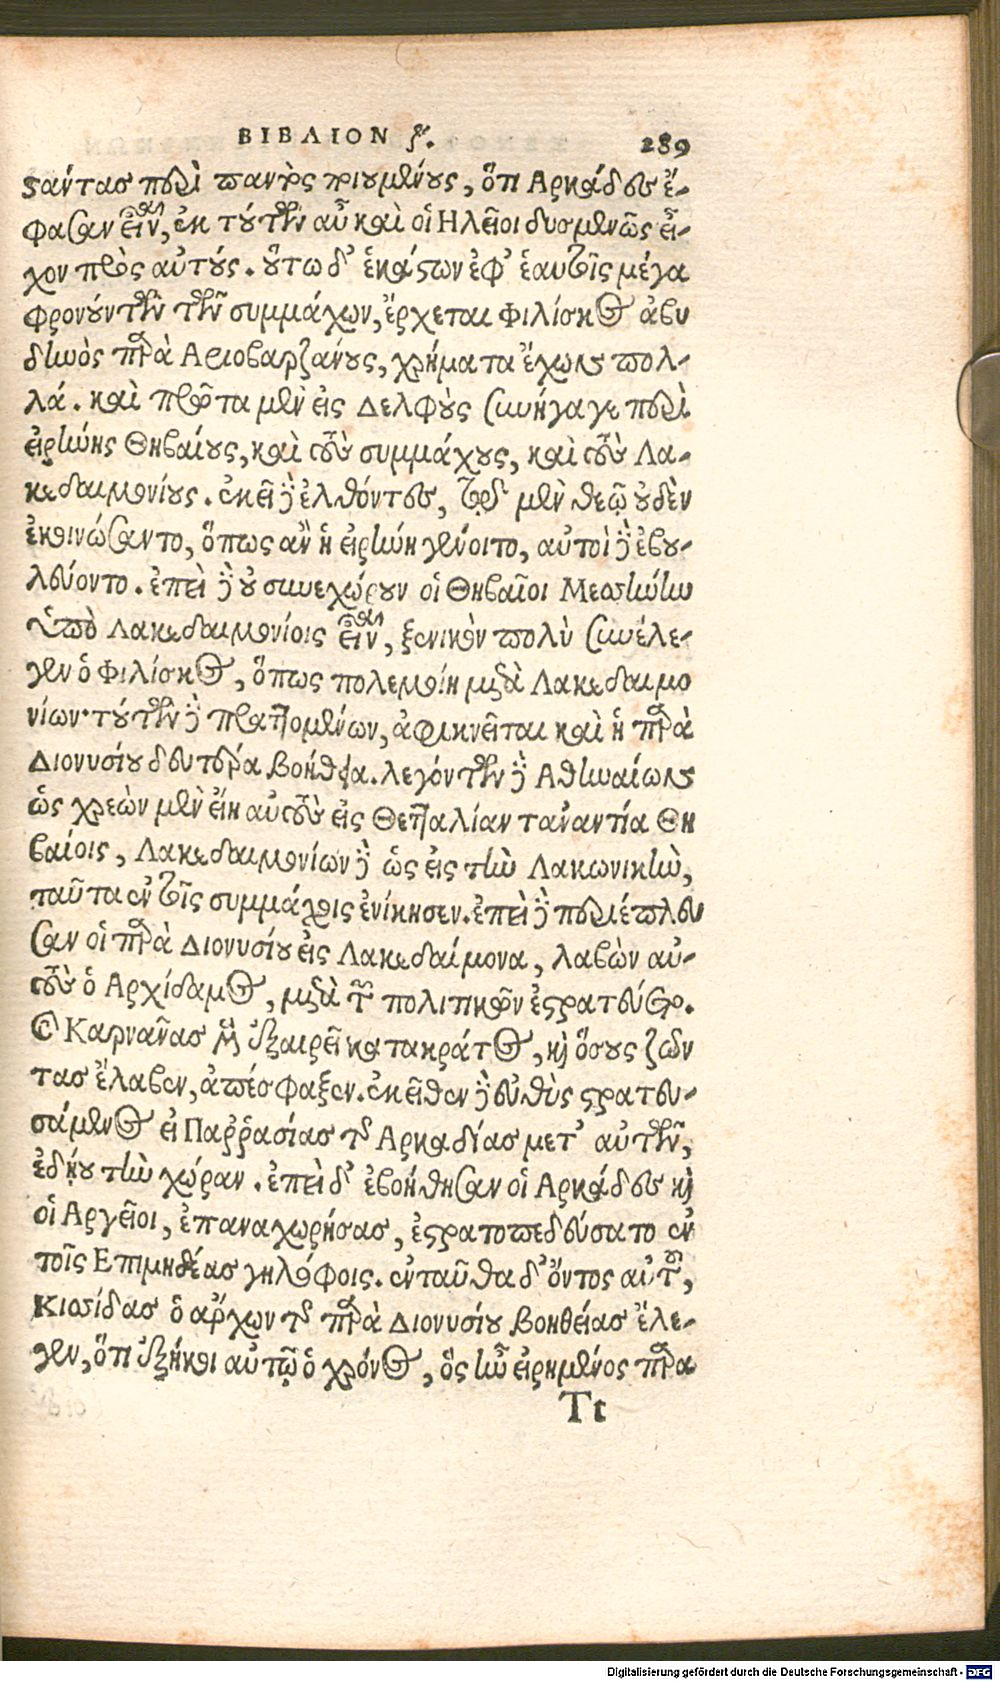 ΒΙΒΛΙΟΝ ζ. 289
στάντας περὶ παντὸς ποιουμένους, ὅτι Αρκάδες ἔ-
φασαν εἶναι, ἐκ τούτων αὖ καὶ οἱ Ηλεῖοι δυσμενῶς εἶ-
χον πρὸς αὐτούς. οὕτω δ' ἑκάστων ἐφ' ἑαυτοῖς μέγα
φρονούντων τῶν συμμάχων, ἔρχεται Φιλίσκος ἀβυ
δηνὸς παρὰ Αριοβαρζάνους, χρήματα ἔχων πολ-
λά. καὶ πρῶτα μὲν εἰς Δελφοὺς συνήγαγε περὶ
εἰρήνης Θηβαίους, καὶ τοὺς συμμάχους, καὶ τοὺς Λα-
κεδαιμονίους. ἐκεῖ δὲ ἐλθόντες, τῷ μὲν θεῷ οὐδὲν
ἐκοινώσαντο, ὅπως ἂν ἡ εἰρήνη γένοιτο, αὐτοὶ δὲ ἐβου-
λεύοντο. ἐπεὶ δὲ οὐ συνεχώρουν οἱ Θηβαῖοι Μεσσήνην
ὑπὸ Λακεδαιμονίοις εἶναι, ξενικὸν πολὺ συνέλε-
γεν ὁ Φιλίσκος, ὅπως πολεμοίη μετὰ Λακεδαιμο
νίων· τούτων δὲ πραττομένων, ἀφικνεῖται καὶ ἡ παρὰ
Διονυσίου δευτέρα βοήθεια. λεγόντων δὲ Αθηναίων
ὡς χρεὼν μὲν εἴη αὐτοὺς εἰς Θετταλίαν τἀναντία Θη
βαίοις, Λακεδαιμονίων δὲ ὡς εἰς τὴν Λακωνικὴν,
ταῦτα ἐν τοῖς συμμάχοις ἐνίκησεν. ἐπεὶ δὲ περιέπλευ
σαν οἱ παρὰ Διονυσίου εἰς Λακεδαίμονα, λαβὼν αὐ-
τοὺς ὁ Αρχίδαμος, μετὰ τῶν πολιτικῶν ἐστρατεύετο.
ϗ Καρύας μὲν ἐξαιρεῖ κατακράτος, ϗ ὅσους ζῶν
τας ἔλαβεν, ἀπέσφαξεν. ἐκεῖθεν δὲ εὐθὺς στρατευ-
σάμενος εἰ Παῤῥασίας τῆς Αρκαδίας μετ' αὐτῶν,
ἐδῄου τὴν χώραν. ἐπεὶ δ' ἐβοήθησαν οἱ Αρκάδες ϗ
οἱ Αργεῖοι, ἐπαναχωρήσας, ἐστρατοπεδεύσατο ἐν
τοῖς Επιμηδέας γηλόφοις. ἐνταῦθα δ' ὄντος αὐτοῦ,
Κισσίδας ὁ ἄρχων τῆς παρὰ Διονυσίου βοηθείας ἔλε-
γεν, ὅτι ἐξήκοι αὐτῷ ὁ χρόνος, ὃς ἦν εἰρημένος παρα
Tt
Digitalisierung gefördert durch die Deutsche Forschungsgemeinschaft - DFG